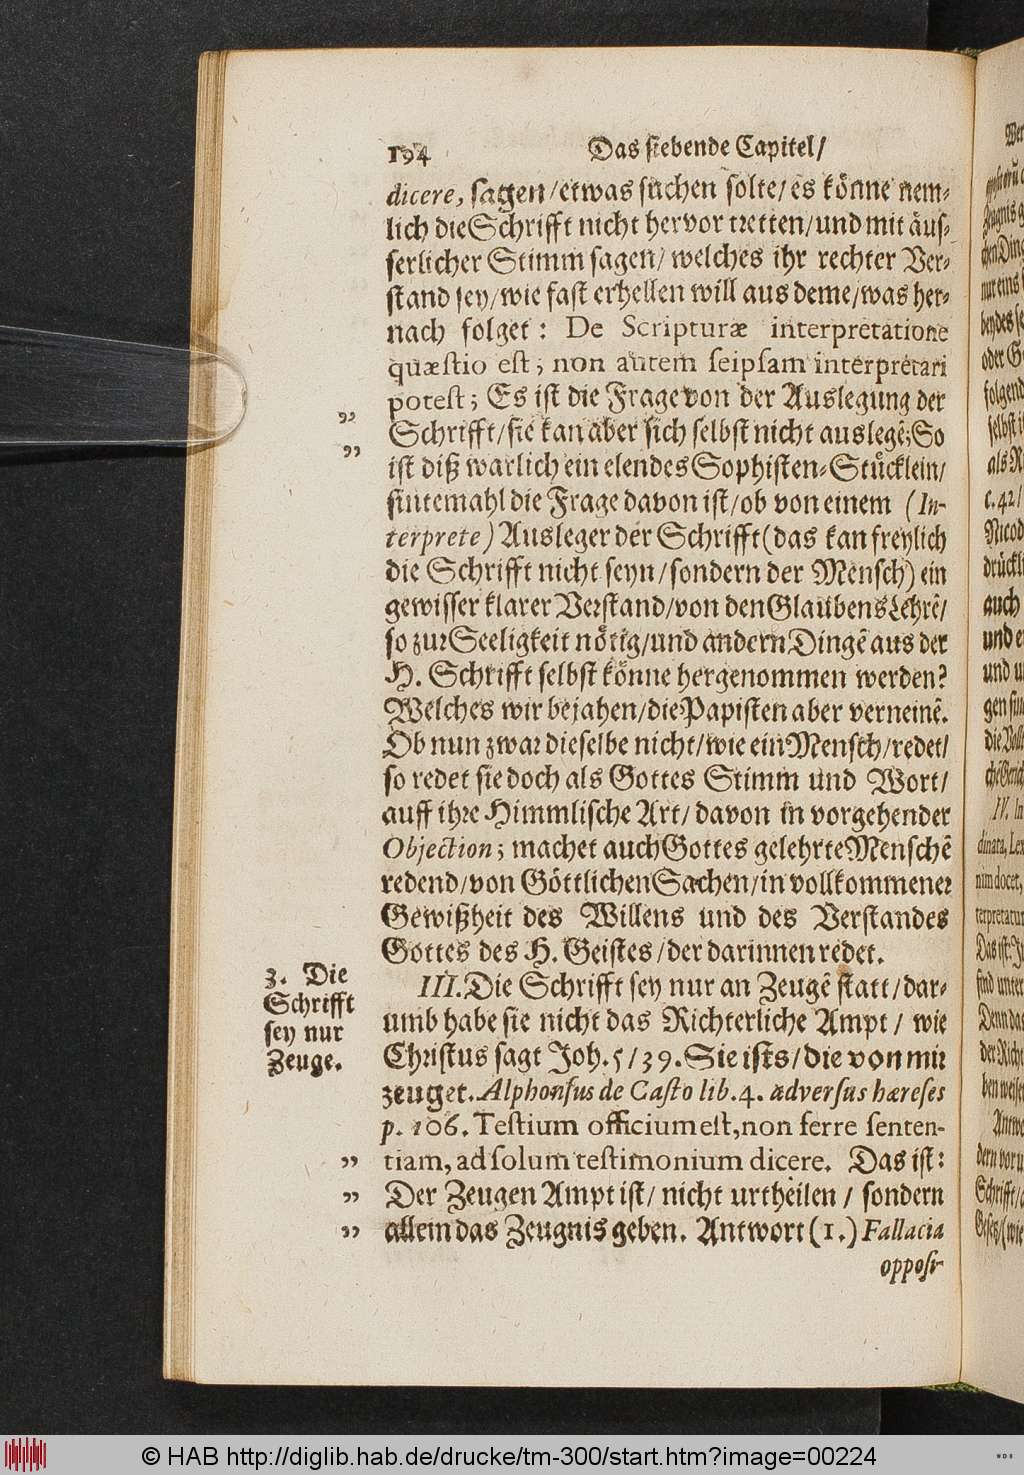 194 Das siebende Capitel/
dicere, sagen/etwas suchen solte/es könne nem-
lich die Schrifft nicht hervor tretten/und mit äus-
serlicher Stimm sagen/ welches ihr rechter Ver-
stand sey/wie fast erhellen will aus deme/was her-
nach folget: De Scripturæ interpretatione
quæstio est, non autem seipsam interpretari
potest; Es ist die Frage von der Auslegung der
Schrifft/sie kan aber sich selbst nicht auslegẽ; So
ist diß warlich ein elendes Sophisten-Stücklein/
sintemahl die Frage davon ist/ob von einem (In-
terprete) Ausleger der Schrifft (das kan freylich
die Schrifft nicht seyn/sondern der Mensch) ein
gewisser klarer Verstand/von den Glaubens Lehrẽ/
so zur Seeligkeit nötig/und andern Dingẽ aus der
H. Schrifft selbst könne hergenommen werden?
Welches wir bejahen/die Papisten aber verneinẽ.
Ob nun zwar dieselbe nicht/wie ein Mensch/redet/
so redet sie doch als Gottes Stimm und Wort/
auff ihre Himmlische Art/davon in vorgehender
Objection; machet auch Gottes gelehrte Menschẽ
redend/von Göttlichen Sachen/in vollkommener
Gewißheit des Willens und des Verstandes
Gottes des H. Geistes/der darinnen redet.
3. Die
Schrifft
sey nur
Zeuge.
III. Die Schrifft sey nur an Zeugẽ statt/dar-
umb habe sie nicht das Richterliche Ampt/ wie
Christus sagt Joh. 5/39. Sie ists/die von mir
zeuget. Alphonsus de Casto lib. 4. adversus hæreses
p. 106. Testium officium est, non ferre senten-
" tiam, ad solum testimonium dicere. Das ist:
" Der Zeugen Ampt ist/ nicht urtheilen/ sondern
" allein das Zeugnis geben. Antwort (1.) Fallacia
opposi-
© HAB http://diglib.hab.de/drucke/tm-300/start.htm?image=00224